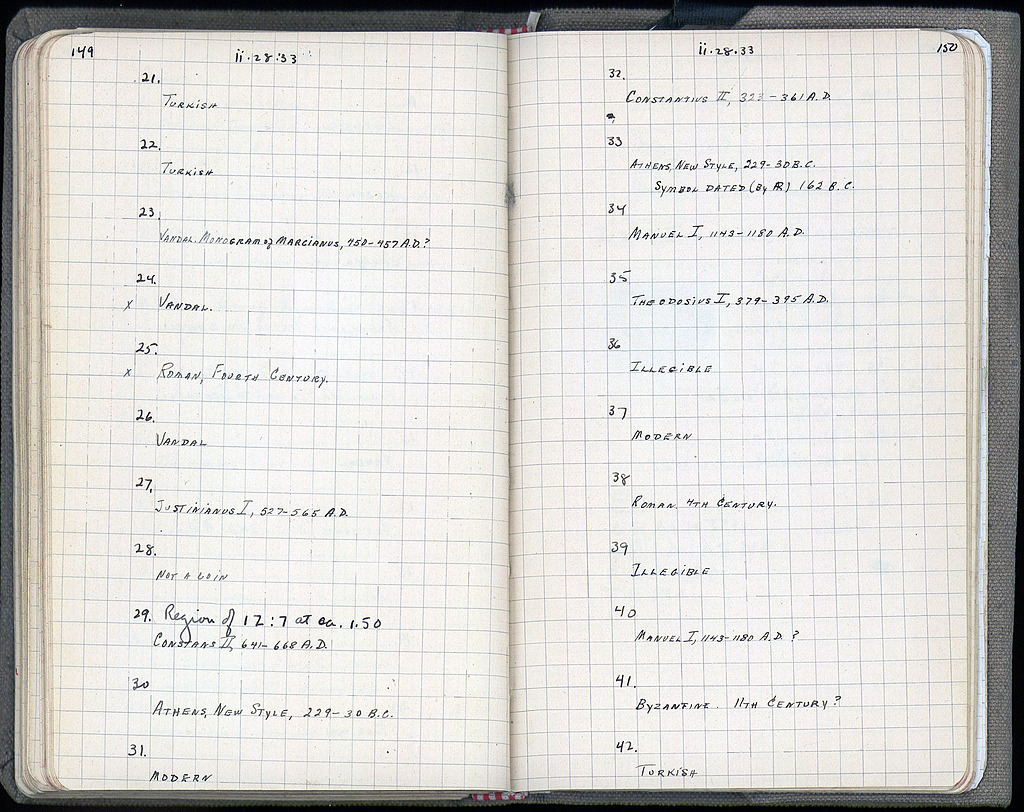 149
ii·28·33
21.
TURKISH
22.
TURKISH
23.
VANDAL. MONOGRAM of MARCIANUS, 450-457 A.D.?
24.
x VANDAL.
25.
x ROMAN, FOURTH CENTURY.
26.
VANDAL
27.
JUSTINIANUS I, 527-565 A.D.
28.
NOT A COIN
29. Region of 12:7 at ca. 1.50
CONSTANS II, 641-668 A.D.
30
ATHENS, NEW STYLE, 229-30 B.C.
31.
MODERN
ii·28·33
150
32.
CONSTANTIUS II, 323-361 A.D.
33
ATHENS, NEW STYLE, 229-30 B.C.
SYMBOL DATED (By AR) 162 B.C.
34
MANUEL I, 1143-1180 A.D.
35
THEODOSIUS I, 379-395 A.D.
36
ILLEGIBLE
37
MODERN
38
ROMAN. 4TH CENTURY.
39
ILLEGIBLE
40
MANUEL I, 1143-1180 A.D.?
41.
BYZANTINE. 11TH CENTURY?
42.
TURKISH